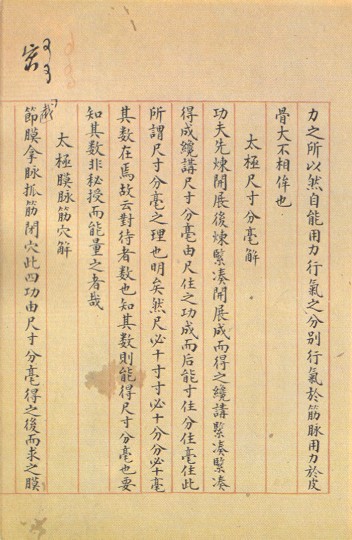 力之所以然自能用力行氣之分別行氣於筋脉用力於皮
骨大不相侔也
太極尺寸分毫解
功夫先煉開展後煉緊凑開展成而得之纔講緊凑緊凑
得成纔講尺寸分毫由尺住之功成而后能寸住分住毫住此
所謂尺寸分毫之理也明矣然尺必十寸寸必十分分必十毫
其数在焉故云對待者数也知其数則能得尺寸分毫也要
知其数非秘授而能量之者哉
太極膜脉筋穴解
節膜拿脉抓筋閉穴此四功由尺寸分毫得之後而求之膜